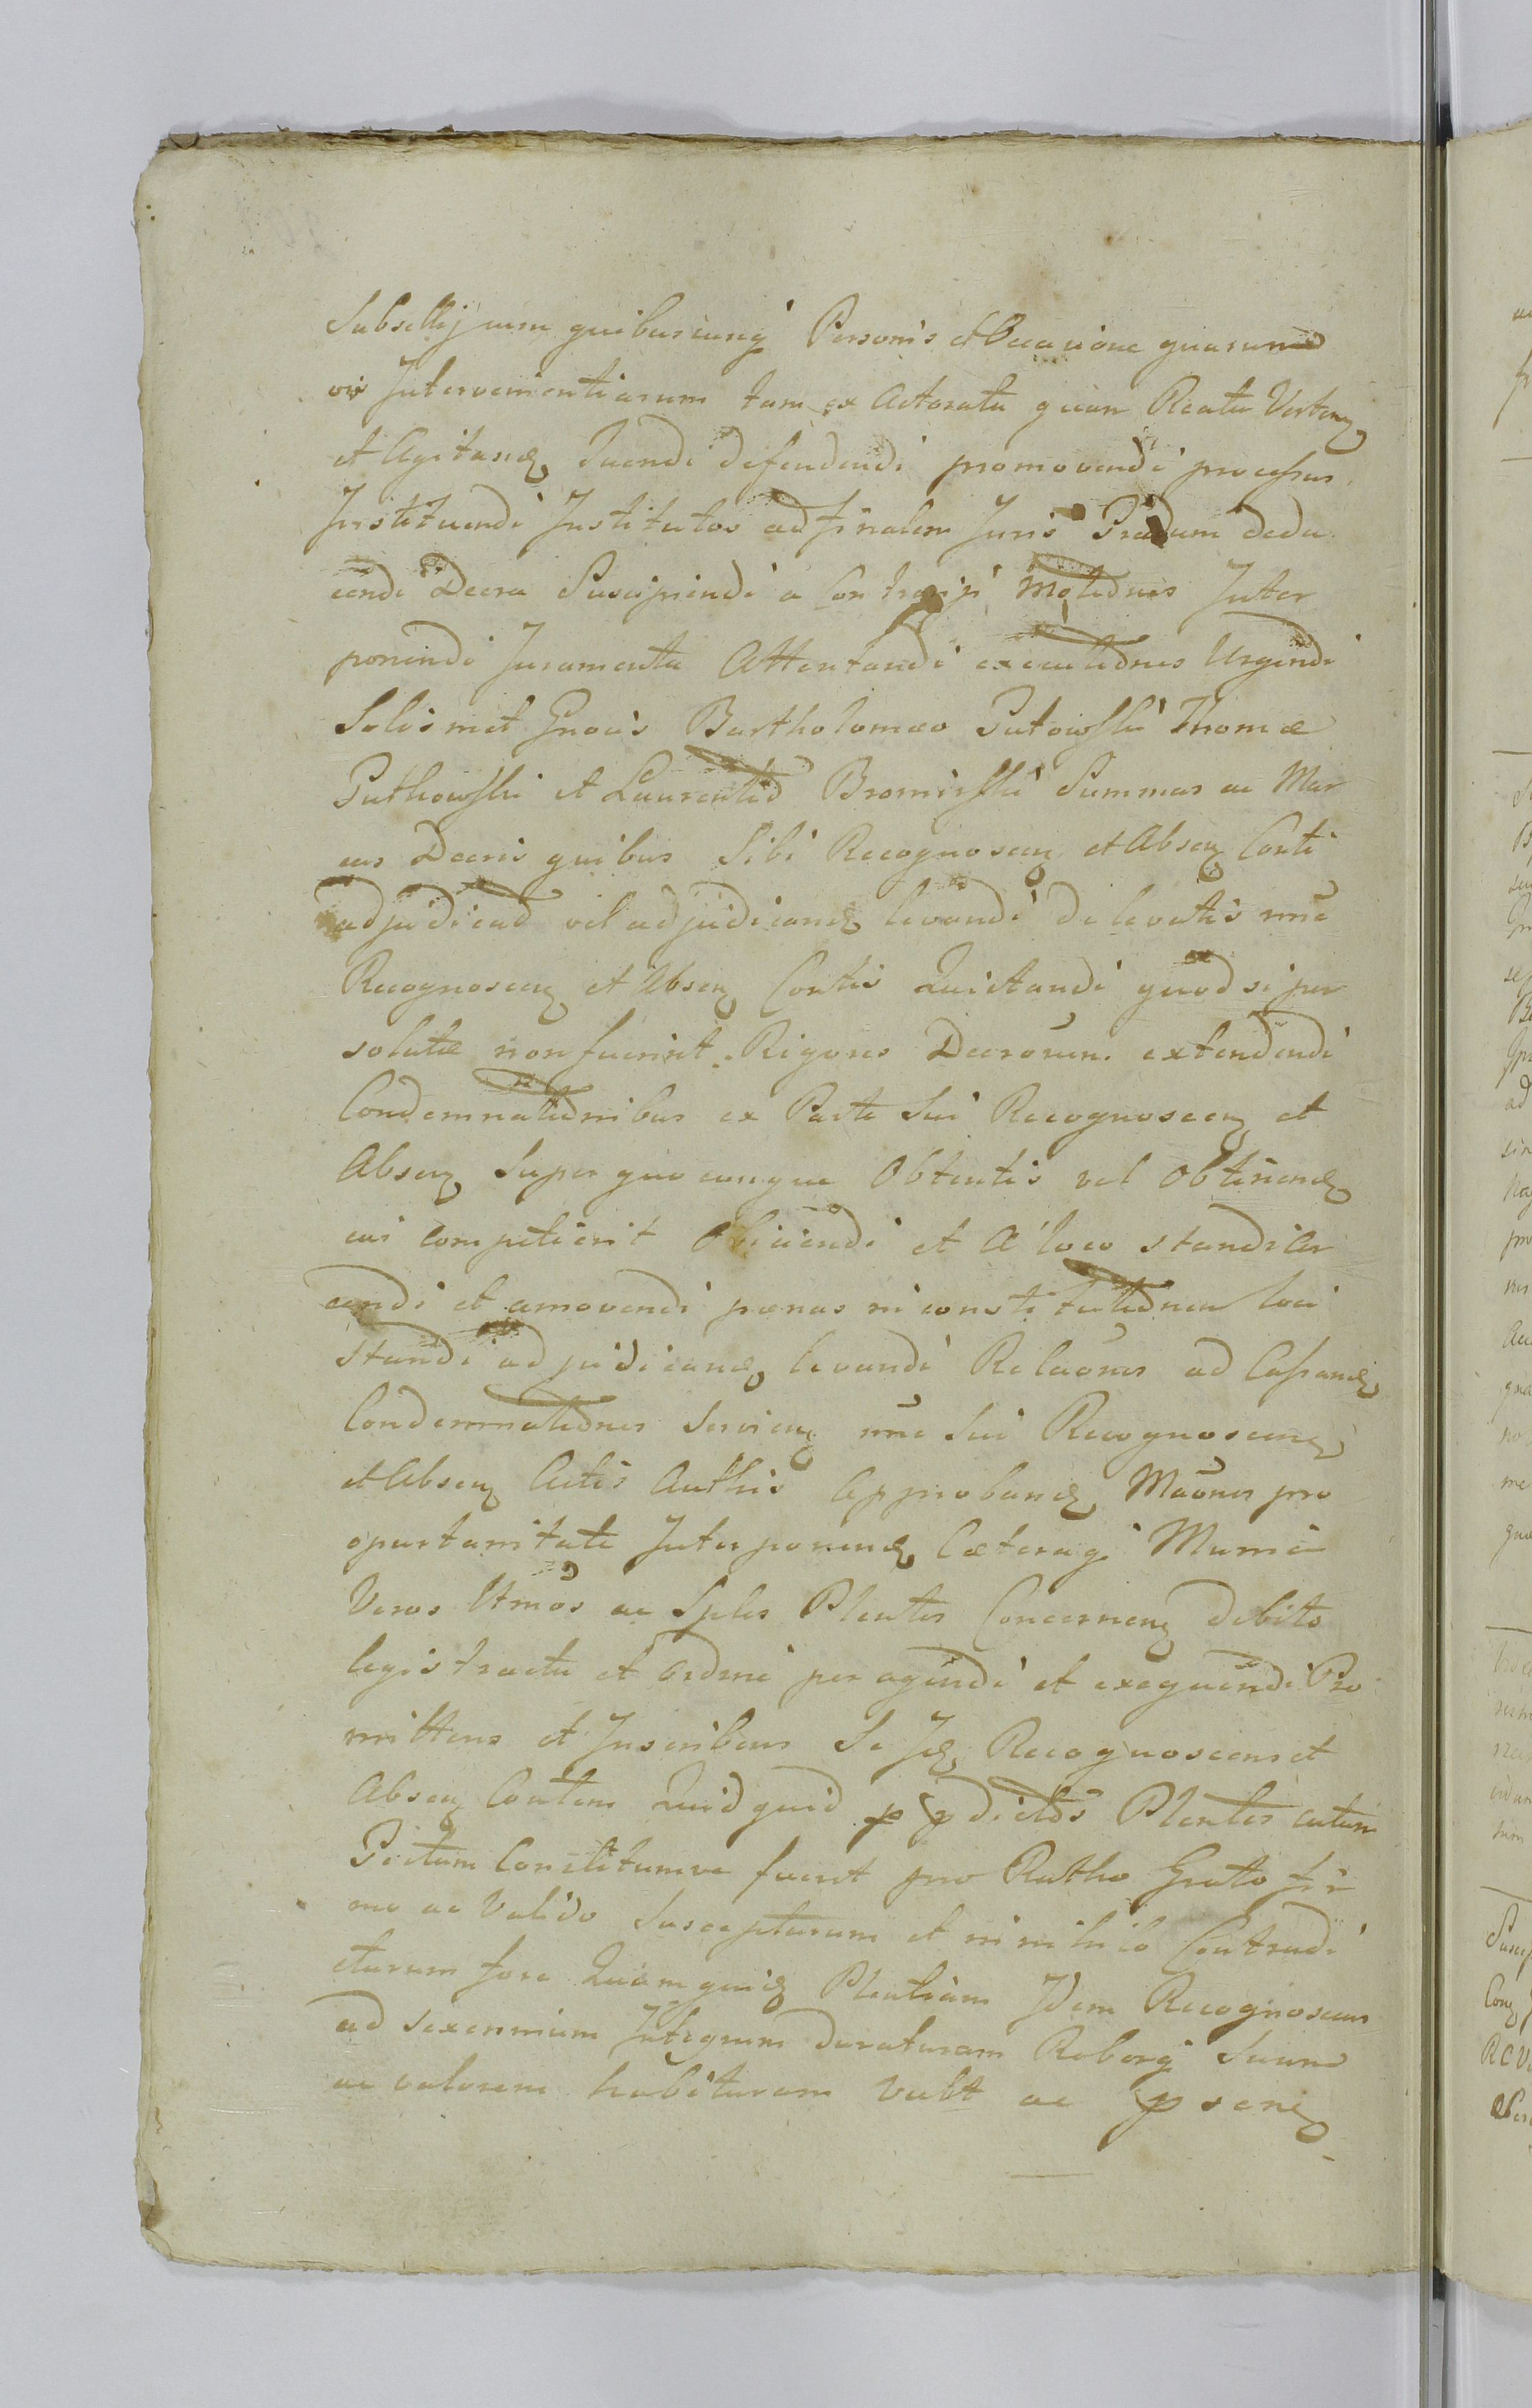 Subsellij cum quibuscunq Personis et Occasione quarum
vis Intervenientiarum tam ex Actoratu quam Reatu Verten
et Agitand tuendi defendendi promovendi processus
Instituendi Institutos ad finalem Juris Gradum dedu
cendi Decra Suscipiendi a Contrarijs Motiones Inter
ponendi Juramenta Attentandi executiones Urgendi
Solismet Gnosis Bartholomæo Gutowski Thomæ
Gutkowski et Laurentio Bromirski Summas ac Mar
cas Decris quibus Sibi Recognoscen et Absen Conti
adjudicad vel adjudicand levandi de levatis nne
Recognoscen et Absen Contis Quietandi quod si per
solutæ non fuerint Rigores Decrorum extendendi
Condemnationibus ex Parte Sui Recognoscen et
Absen Super quocunque Obtentis vel Obtinend
cui competierit Obiiciendi et a loco standi Ar
cendi et amovendi pænas in constitutionem loci
standi adjudicand levandi Relaones ad Cassand
Condemnationes Servien nne Sui Recognoscend
et Absen Actis Authis Approband Maones pro
oportunitate Interponend Cæteraq Munia
Veros Utmos ac Sples Plentes Concernen debito
legis tractu et ordine peragendi et exequendi Pro
mittens et Inscribens Se Id Recognoscens et
Absen Contem Quidquid p pdictos Plentes actum
Gestum Constitumve fuerit pro Ratho Grato fir
mo ac Valido Suscepturum et in nihilo Contradi
cturum fore Quamquid Plentiam Idem Recognoscens
ad sexennium Integrum duraturam Roborq Suum
ac valorem habituram vult ac p send